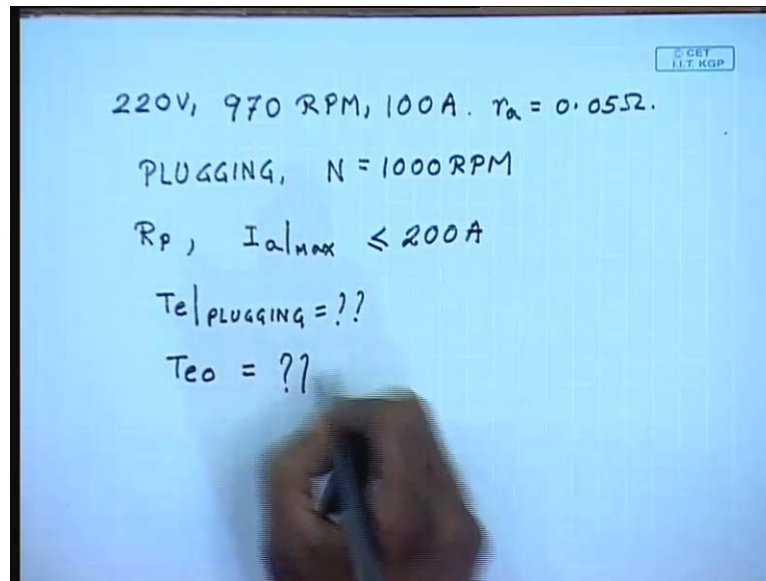 © CET
I.I.T. KGP
220V, 970 RPM, 100A. ra = 0.05Ω.
PLUGGING, N = 1000 RPM
Rp, Ia|MAX ≤ 200A
Te|PLUGGING = ??
Teo = ??